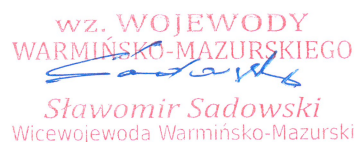 wz. WOJEWODY
WARMIŃSKO-MAZURSKIEGO
Sadowski
Sławomir Sadowski
Wicewojewoda Warmińsko-Mazurski